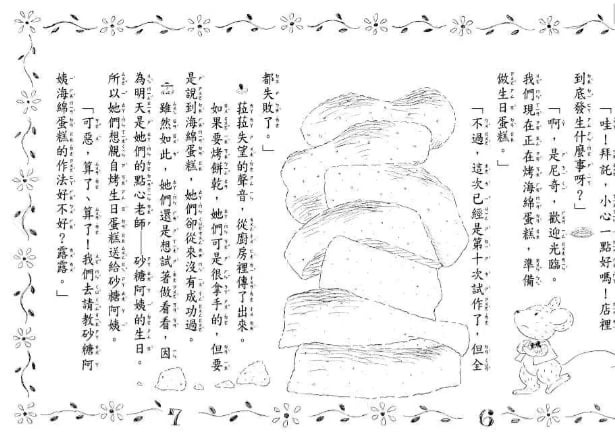 「哇！拜託，小心一點好嗎！店裡
到底發生什麼事呀？」
「啊，是尼奇，歡迎光臨。
我們現在正在烤海綿蛋糕，準備
做生日蛋糕。」
「不過，這次已經是第十次試作了，但全
都失敗了。」
菈菈失望的聲音，從廚房裡傳了出來。
如果要烤餅乾，她們可是很拿手的，但要
是說到海綿蛋糕，她們卻從來沒有成功過。
雖然如此，她們還是想試著做看看，因
為明天是她們的點心老師——砂糖阿姨的生日。
所以她們想親自烤生日蛋糕送給砂糖阿姨。
「可惡，算了、算了！我們去請教砂糖阿
姨海綿蛋糕的作法好不好？露露。」
6
7